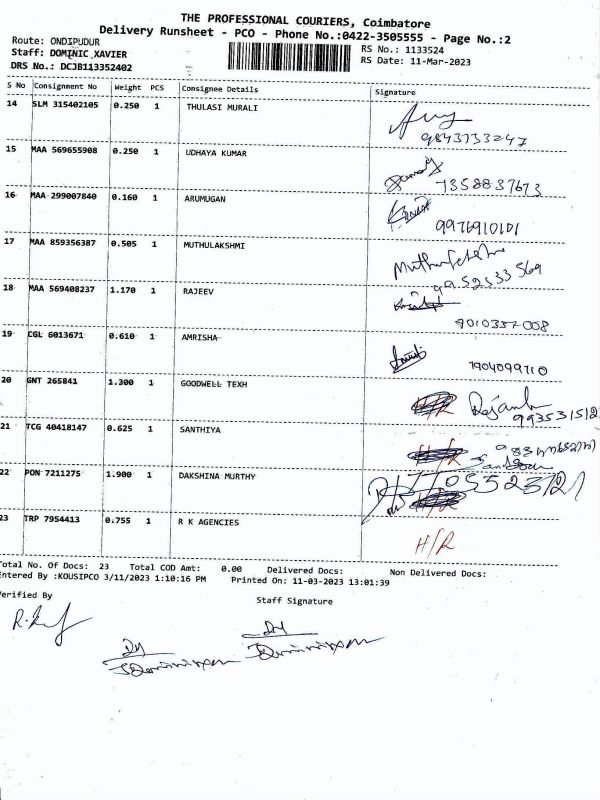 THE PROFESSIONAL COURIERS, Coimbatore
Delivery Runsheet - PCO - Phone No.:0422-3505555 - Page No.:2
Route: ONDIPUDUR
Staff: DOMINIC XAVIER
DRS No.: DCJB113352402
RS No.: 1133524
RS Date: 11-Mar-2023
S No Consignment No Weight PCS Consignee Details Signature
14 SLM 315402105 0.250 1 THULASI MURALI
9843733247
15 MAA 569655908 0.250 1 UDHAYA KUMAR
7358837673
16 MAA 299007840 0.160 1 ARUMUGAN
9976910101
17 MAA 859356387 0.505 1 MUTHULAKSHMI
9952533569
18 MAA 569408237 1.170 1 RAJEEV
9010337008
19 CGL 6013671 0.610 1 AMRISHA
7904099710
20 GNT 265841 1.300 1 GOODWELL TEXH
H/R
993531512
21 TCG 40418147 0.625 1 SANTHIYA
H/R
22 PON 7211275 1.900 1 DAKSHINA MURTHY
7705523121
H/R
23 TRP 7954413 0.755 1 R K AGENCIES
H/R
Total No. Of Docs: 23 Total COD Amt: 0.00 Delivered Docs: Non Delivered Docs:
Entered By :KOUSIPCO 3/11/2023 1:10:16 PM Printed On: 11-03-2023 13:01:39
Verified By
Staff Signature